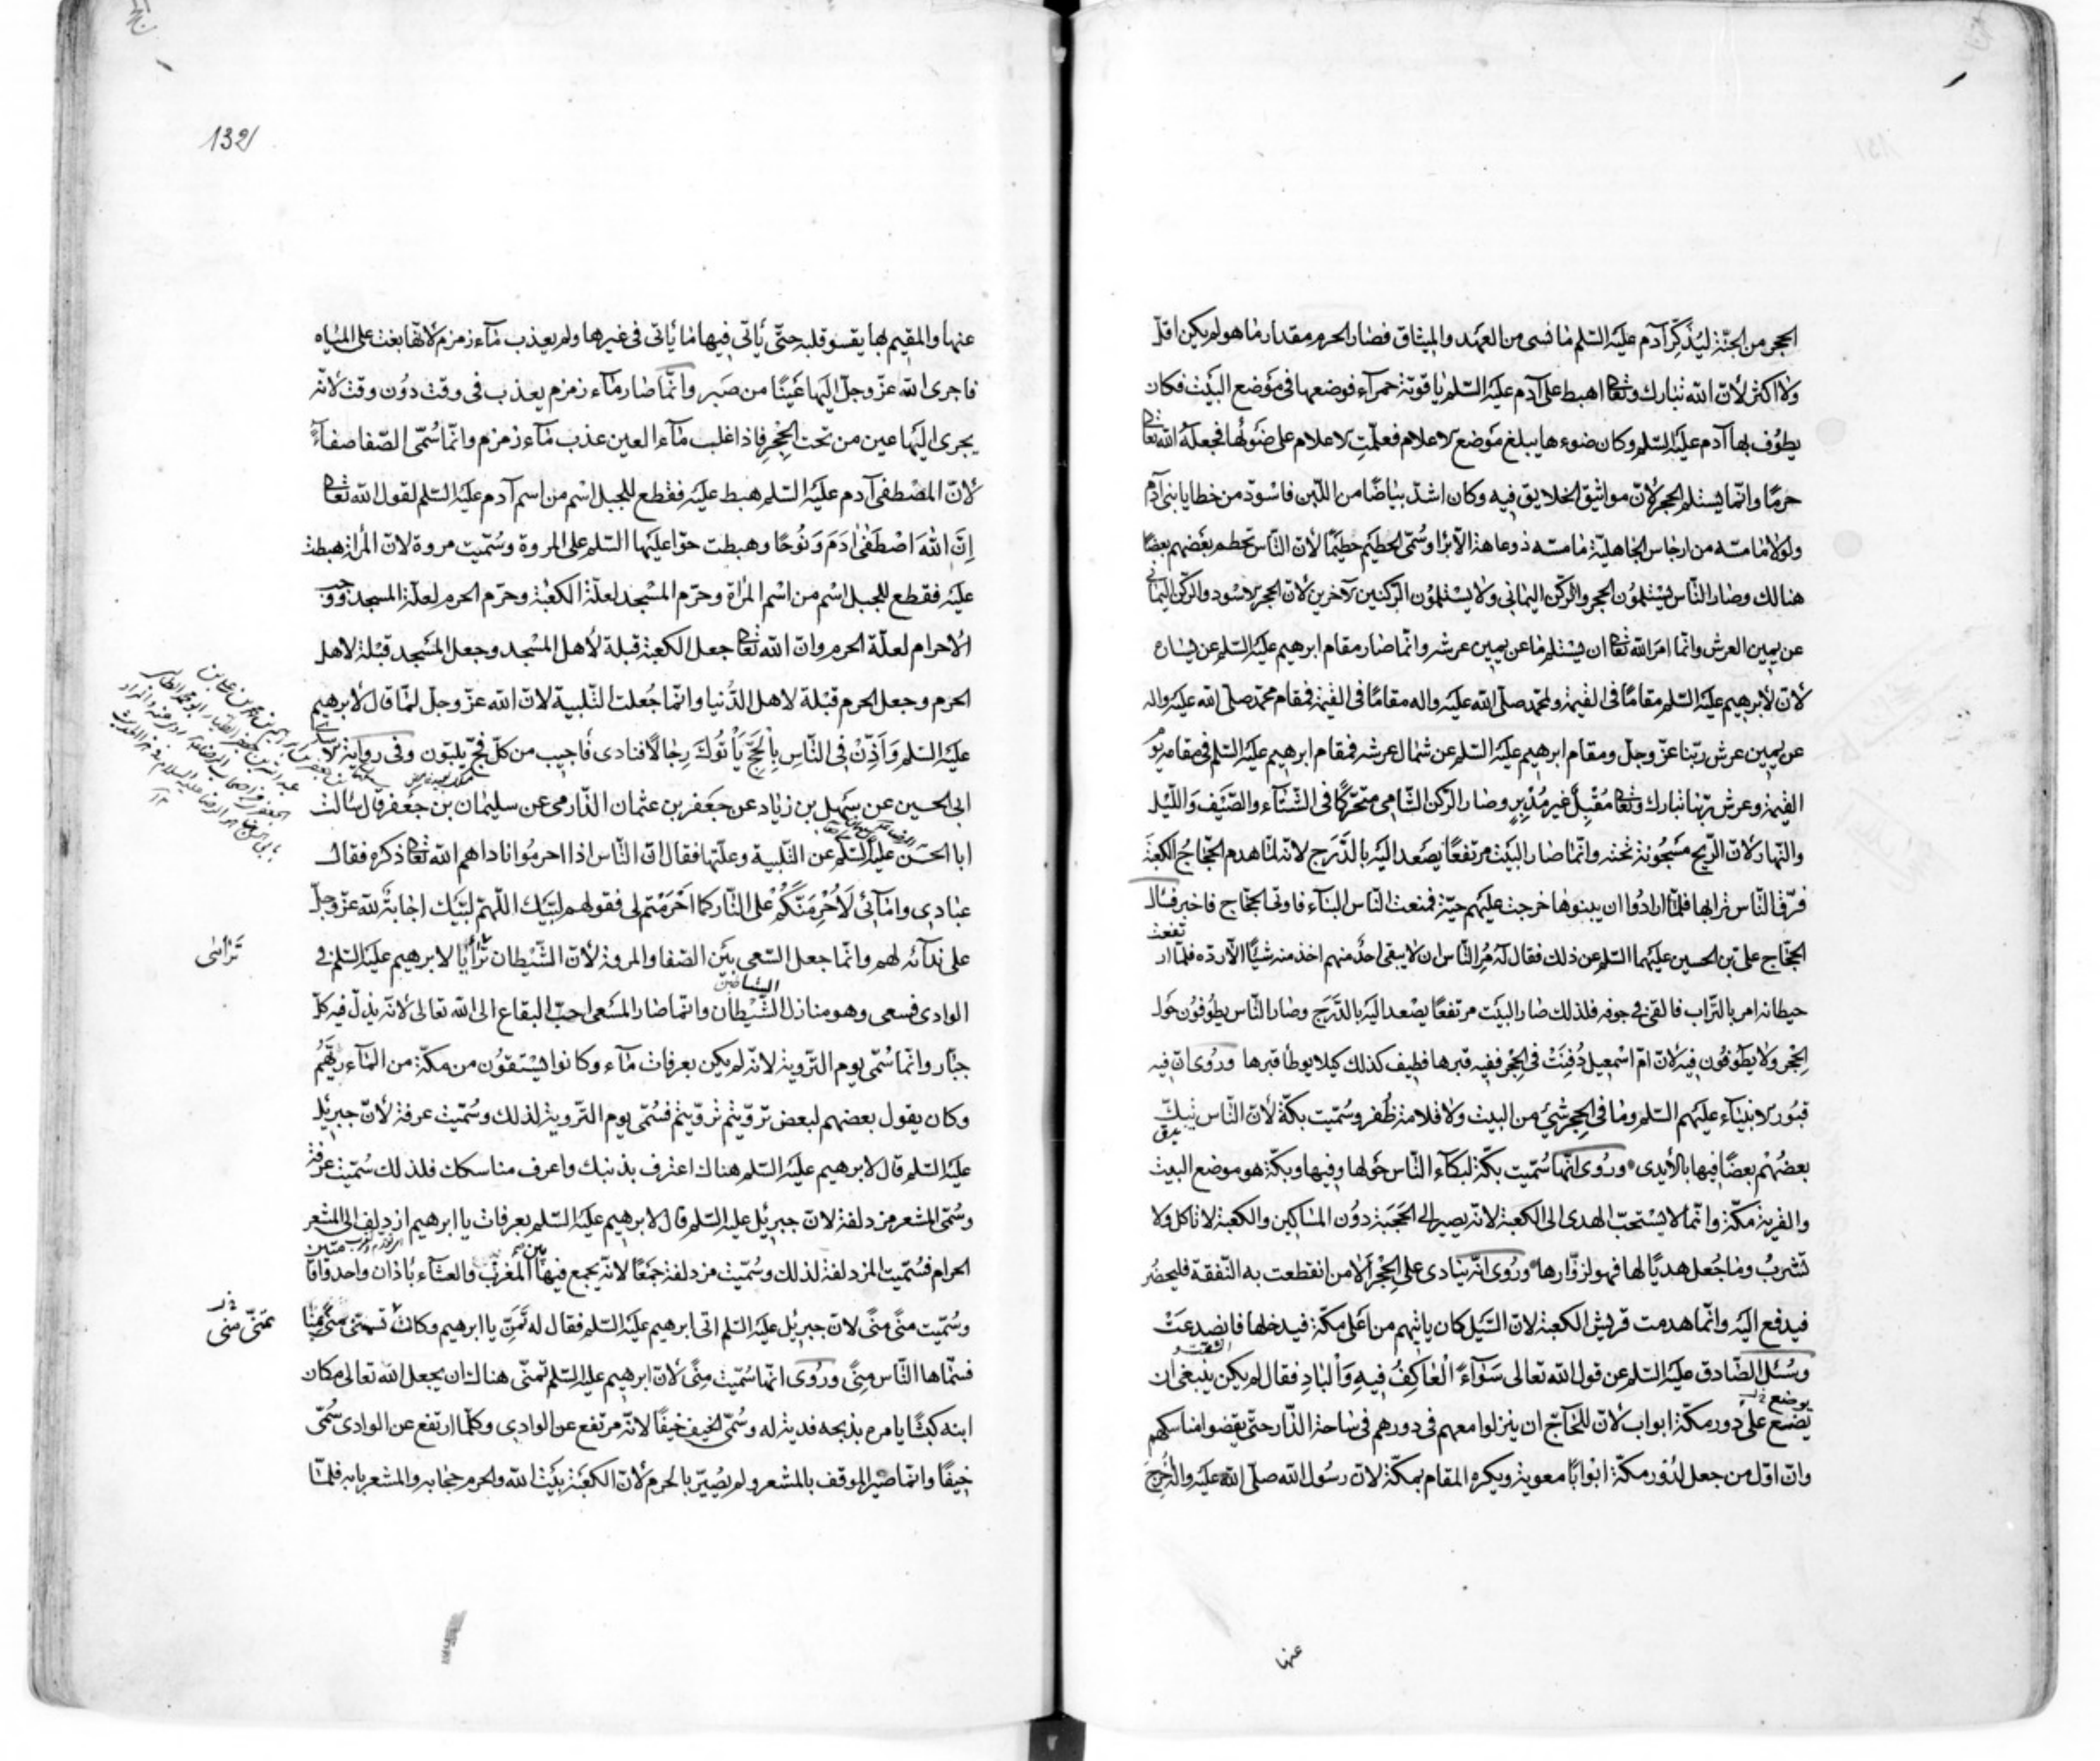 الحجر من الجنّة ليُذكِّرَ آدم عليه السّلم ما نسى من العهد والميثاق فصار الحرم مقدار ما هو لم يكن اقلّ
ولا اكثر لانّ الله تبارك وتعا اهبط على آدم عليه السّلم ياقوتة حمرآء فوضعها في موضع البيت فكان
يطوف بها آدم عليه السّلم وكان ضوءها يبلغ موضع الاعلام فعلّمت الاعلام على ضوئها فجعله الله تعا
حرمًا وانّما يستلم الحجر لانّ مواثيق الخلايق فيه وكان اشدّ بياضًا من اللّبن فاسودّ من خطايا بنى آدم
ولولا ما مسّه من ارجاس الجاهليّة ما مسّه ذو عاهة الّا برا وسُمّى الحطيم حطيمًا لانّ النّاس تحطم بعضهم بعضًا
هنالك وصار النّاس يستلمون الحجر والرّكن اليمانى ولا يستلمون الرّكنين الآخرين لانّ الحجر الاسود والرّكن اليمانى
عن يمين العرش وانّما امر الله تعا ان يستلم ما عن يمين عرشه وانّما صار مقام ابرهيم عليه السّلم عن يساره
لانّ لابرهيم عليه السّلم مقامًا فى القيمة ولمحمّد صلّى الله عليه واله مقامًا فى القيمة فمقام محمّد صلّى الله عليه واله
عن يمين عرش ربّنا عزّ وجلّ ومقام ابرهيم عليه السّلم عن شمال عرشه فمقام ابرهيم عليه السّلم فى مقامه يوم
القيمة وعرش ربّنا تبارك وتعا مُقبِلٌ غير مُدبِرٍ وصار الرّكن الشّامى متحرّكًا فى الشّتآء والصّيف واللّيل
والنّهار لانّ الرّيح مسجونة تحته وانّما صار البيت مرتفعًا يصعد اليه بالدّرج لانّه لمّا هدم الحجّاج الكعبة
فرّق النّاس ترابها فلمّا ارادوا ان يبنوها خرجت عليهم حيّة فمنعت النّاس البنآء فاوتى الحجّاج فاخبر فسال
الحجّاج علىّ بن الحسين عليهما السّلم عن ذلك فقال له مُر النّاس ان لا يبقى احدٌ منهم اخذ منه شيئًا الّا ردّه فلمّا ار
تفعت
حيطانه امر بالتّراب فالقى فى جوفه فلذلك صار البيت مرتفعًا يصعد اليه بالدّرج وصار النّاس يطوفون حول
الحِجْر ولا يطوفون فيه لانّ امّ اسمعيل دُفِنَتْ فى الحِجْر ففيه قبرها فطيف كذلك كيلا يوطأ قبرها ورُوى انّ فيه
قبور الانبيآء عليهم السّلم وما فى الحِجر شئ من البيت ولا قلامة ظفر وسُمّيت بكّة لانّ النّاس يبكّ
بعضهم بعضًا فيها بالأيدى ورُوى انّها سُمّيت بكّة لبكآء النّاس حولها وفيها وبكّة هو موضع البيت
والقرية مكّة وانّما لا يستحبّ الهدى الى الكعبة لانّه يصير الى الحجبة دون المساكين والكعبة لا تاكل ولا
تشرب وما جُعل هديًا لها فهو لزوّارها ورُوى انّه ينادى على الحِجْر ألا من انقطعت به النّفقة فليحضر
فيدفع اليه وانّما هدمت قريش الكعبة لانّ السّيل كان ياتيهم من اعلى مكّة فيدخلها فانصدعت
وسُئل الصّادق عليه السّلم عن قول الله تعالى سَوَآءً الْعَاكِفُ فِيهِ وَالْبَادِ فقال لم يكن ينبغى ان
يوضع
يضع على دور مكّة ابواب لانّ للحآجّ ان ينزلوا معهم فى دورهم فى ساحة الدّار حتّى يقضوا مناسكهم
وانّ اوّل من جعل لدور مكّة ابوابًا معوية ويكره المقام بمكّة لانّ رسول الله صلّى الله عليه واله أُخرِجَ
عنها
132
عنها والمقيم بها يقسو قلبه حتّى يأتى فيها ما يأتى فى غيرها ولم يعذب مآء زمزم لانّها بغت على المياه
فاجرى الله عزّ وجلّ اليها عينًا من صبر وانّما صار مآء زمزم يعذب فى وقت دون وقت لانّه
يجرى اليها عين من تحت الحِجْر فاذا غلب مآء العين عذب مآء زمزم وانّما سُمّى الصّفا صفآءً
لانّ المصطفى آدم عليه السّلم هبط عليه فقطع للجبل اسم من اسم آدم عليه السّلم لقول الله تعا
اِنَّ اللهَ اصْطَفٰى اٰدَمَ وَنُوحًا وهبطت حوّا عليها السّلم على المروة وسُمّيت مروة لانّ المرأة هبطت
عليه فقطع للجبل اسم من اسم المرأة وحرّم المسجد لعلّة الكعبة وحرّم الحرم لعلّة المسجد ووجب
الاحرام لعلّة الحرم وانّ الله تعا جعل الكعبة قبلة لأهل المسجد وجعل المسجد قبلة لاهل
الحرم وجعل الحرم قبلة لاهل الدّنيا وانّما جُعلت التّلبية لانّ الله عزّ وجلّ لمّا قال لابرهيم
عليه السّلم وَاَذِّنْ فِى النَّاسِ بِالْحَجِّ يَأْتُوكَ رِجَالًا فنادى فأجيب من كلّ فجّ يلبّون وفى رواية
ابى الحسين عن سهل بن زياد عن جعفر بن عثمان الدّارمى عن سليمان بن جعفر قال سالت
ابا الحسن عليه السّلم عن التّلبية وعلّتها فقال انّ النّاس اذا احرموا ناداهم الله تعا ذكره فقال
عبادى وامآئى لَأُحَرِّمَنَّكُمْ على النّار كما احرمتم لى فقولهم لبّيك اللّهمّ لبّيك اجابة لله عزّ وجلّ
على ندآئه لهم وانّما جعل السّعى بين الصّفا والمروة لانّ الشّيطان تَرأيا لابرهيم عليه السّلم فى
ترآئى
الشياطين
الوادى فسعى وهو منازل الشّيطان وانّما صار المسعى احبّ البقاع الى الله تعالى لانّه يذلّ فيه كلّ
جبّار وانّما سُمّى يوم التّروية لانّه لم يكن بعرفات مآء وكانوا يستقون من مكّة من المآء ريّهم
وكان يقول بعضهم لبعض تروّيتم تروّيتم فسُمّى يوم التّروية لذلك وسُمّيت عرفة لانّ جبرئيل
عليه السّلم قال لابرهيم عليه السّلم هناك اعترف بذنبك واعرف مناسكك فلذلك سُمّيت عرفة
وسُمّى المشعر مزدلفة لانّ جبرئيل عليه السّلم قال لابرهيم عليه السّلم بعرفات يا ابرهيم ازدلف الى المشعر
الحرام فسُمّيت المزدلفة لذلك وسُمّيت مزدلفة جمعًا لانّه يجمع فيها المغرب والعشآء بأذان واحد واقا
متين
وسُمّيت منًى منًى لانّ جبرئيل عليه السّلم اتى ابرهيم عليه السّلم فقال له تَمَنَّ يا ابرهيم وكانت تسمّى منًى
تمنّى منى
فسمّاها النّاس مِنًى ورُوى انّها سُمّيت مِنًى لانّ ابرهيم عليه السّلم تمنّى هناك ان يجعل الله تعالى مكان
ابنه كبشًا يامره بذبحه فدية له وسُمّى الخيف خيفًا لانّه مرتفع عن الوادى وكلّما ارتفع عن الوادى سُمّى
خيفًا وانّما صيّر الموقف بالمشعر ولم يُصيّر بالحرم لانّ الكعبة بيت الله والحرم حجابه والمشعر بابه فلمّا